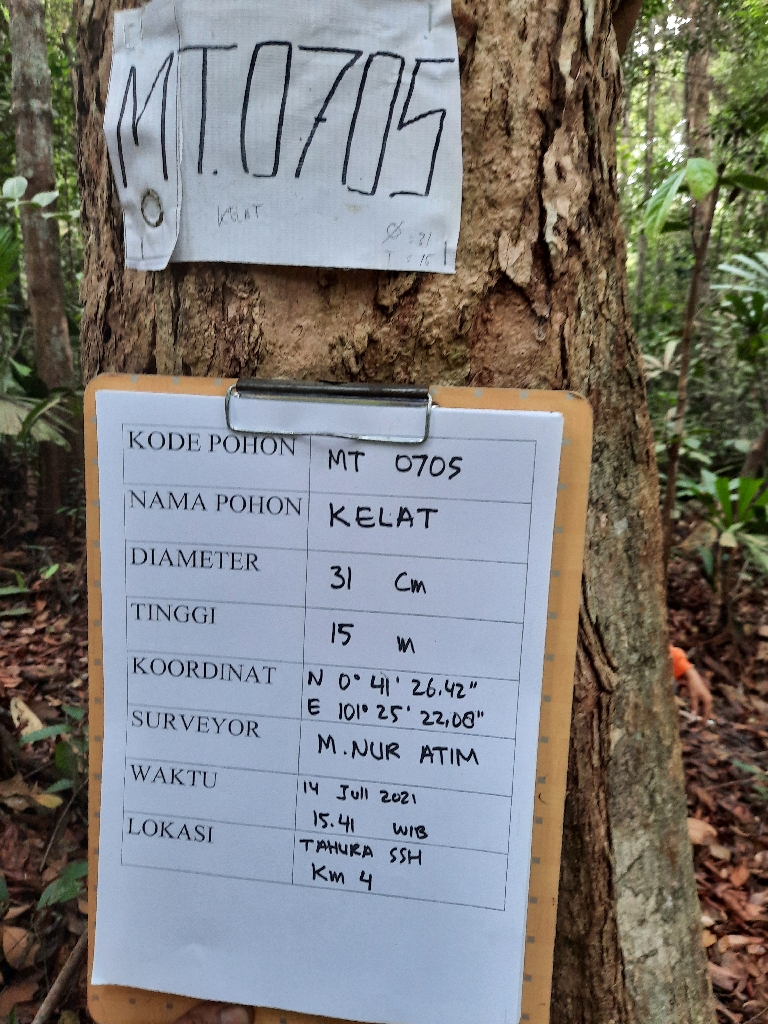 MT.0705
KELAT
Ø = 31
T = 15
KODE POHON MT 0705
NAMA POHON KELAT
DIAMETER 31 Cm
TINGGI 15 m
KOORDINAT N 0° 41' 26.42"
E 101° 25' 22,08"
SURVEYOR M.NUR ATIM
WAKTU 14 Juli 2021
15.41 WIB
LOKASI TAHURA SSH
Km 4